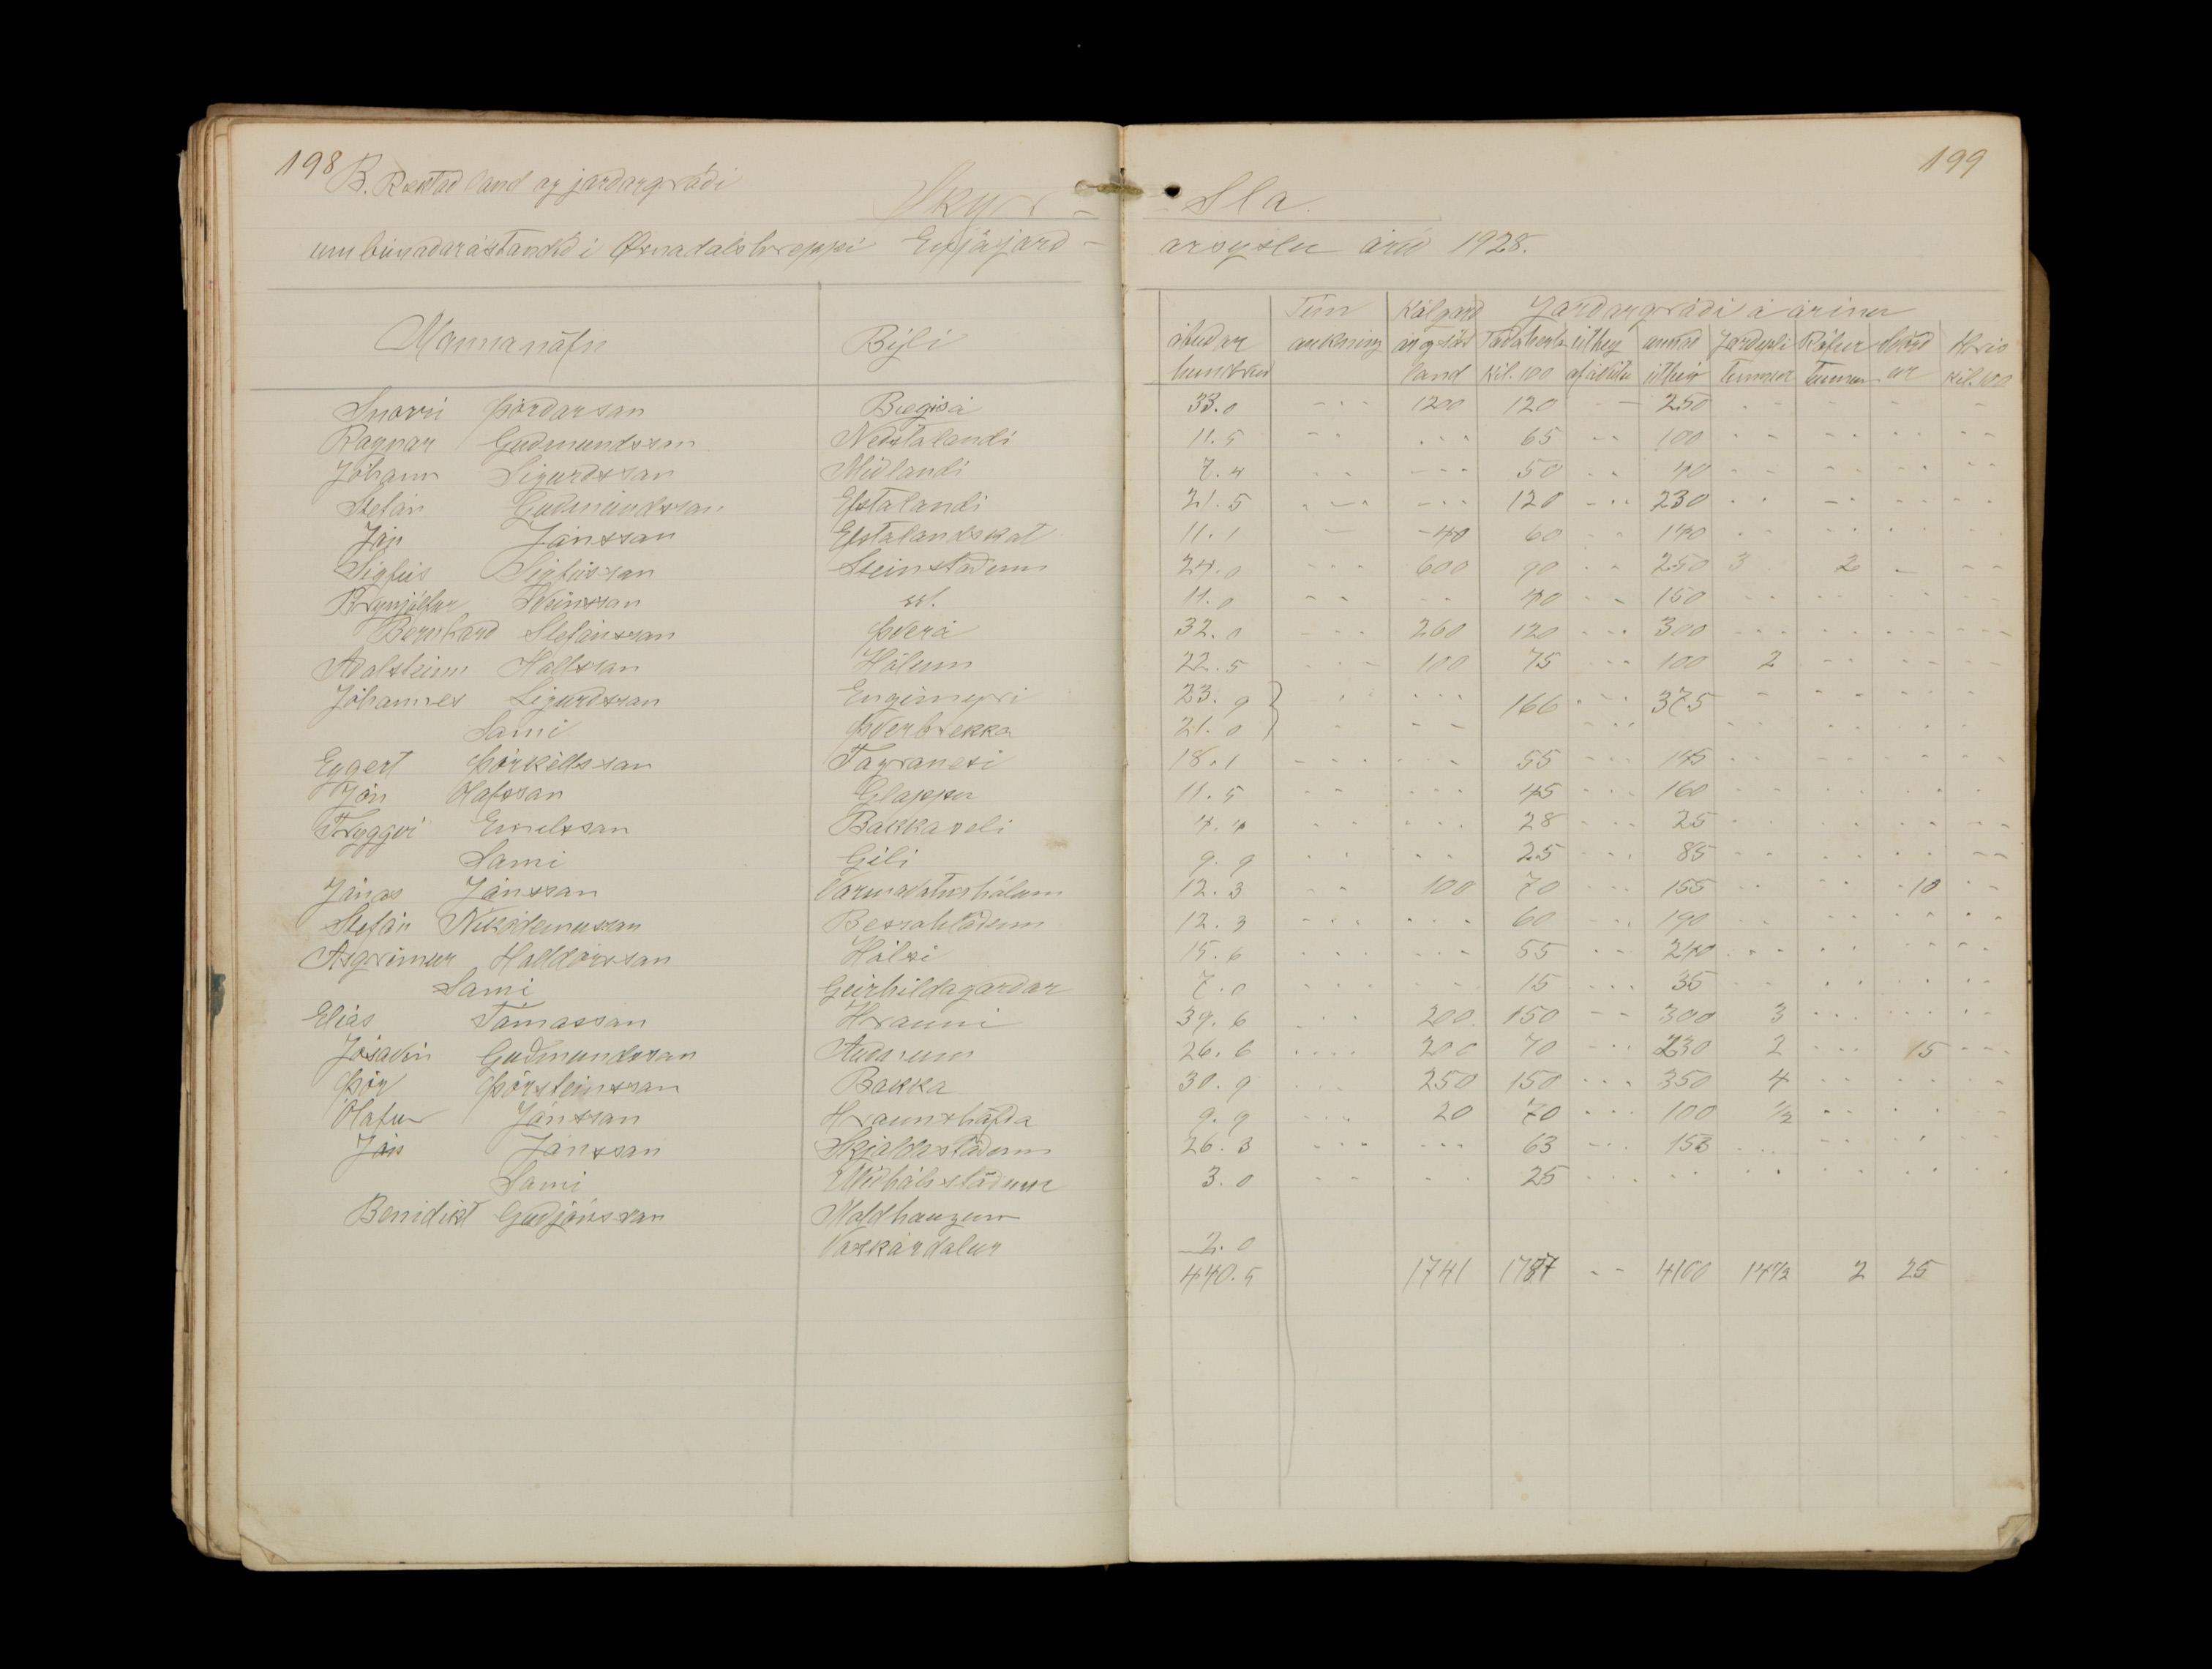 198 B. Ræktad land og jardargródi
199
Skýr-
Sla.
um búnadarástandid i Øxnadalshreppi Eyjafjard-
arsyslu árid 1928.
Mannanöfn Býli ábúdar hundrud Tún aukning Kálgard og land Jardargródi á árinu Tadahesta Kil. 100 úthey af annad úthey Jardepli tunnur Rófur tunnur Hris Kil. 100
Snorri Þórdarson Bægisá 33.0 - - - 1200 120 - - 250 - - - - - -
Ragnar Gudmundsson Nedstalandi 11.5 - - - - - 65 - - 100 - - - - - - - -
Jóhann Sigurdsson Midlandi 7.4 - - - - - 50 - - 40 - - - - - - - -
Stefán Gudmundsson Efstalandi 21.5 - - - - - - 120 - - - 230 - - - - - - - -
Jón Jónsson Efstalandskot 11.1 - - 40 60 - - 140 - - - - - - -
Sigfús Sigfússon Steinstadum 24.0 - - - 600 90 - - 250 3 2 - - -
Brynjólfur Sveinsson st. 11.0 - - - - 40 - - 150 - - - - - - - -
Bernhard Stefánsson Þverá 32.0 - - - 260 120 - - - 300 - - - - - - - - -
Adalsteinn Hallsson Hólum 22.5 - - - 100 75 - - - 100 2 - - - - - -
Jóhannes Sigurdsson Engimyri 23.9 } - - - - 166 - - 375 - - - - - -
Sami Þverbrekka 21.0 } - - - - - - - - - - - -
Eggert Þórkelsson Fagranesi 18.1 - - - - - - 55 - - - 145 - - - - - - - -
Jón Ólafsson Gloppu 11.5 - - - - - 45 - - - 160 - - - - - - - -
Tryggvi Emilsson Bakkaseli 4.4 - - - - - 28 - - - 25 - - - - - - -
Sami Gili 9.9 - - - - 25 - - - 85 - - - - - - - -
Jónas Jónsson Varmavatnshólum 12.3 - - 100 70 - - - 155 - - - - 10 - -
Stefán Nikódemusson Bessahlödum 12.3 - - - - - - 60 - - - 190 - - - - - - - -
Asgrimur Halldórsson Hólsi 15.6 - - - - - - 55 - - 240 - - - - - - - -
Sami Geirhildagardar 7.0 - - - - - 15 - - - 35 - - - - - - - -
Elias Tómasson Hrauni 39.6 - - - 200 150 - - 300 3 - - - - - - -
Jósavin Gudmundsson Audnum 26.6 - - - - 200 70 - - - 230 2 - - - 15 - - -
Þór Þórsteinsson Bakka 30.9 - - - 250 150 - - - 350 4 - - - - - -
Ólafur Jónsson Hraunshöfda 9.9 - - - 20 70 - - - 100 1/2 - - - - - -
Jón Jónsson Skjaldastödum 26.3 - - - - - - 63 - - - 153 - - - - - - - -
Sami Midhálsstödum 3.0 - - - - 25 - - - - - - - - - -
Benidikt Gudjónsson Moldhaugum
Vaskárdalur 2.0
440.5 1741 1787 - - 4100 14 1/2 2 25